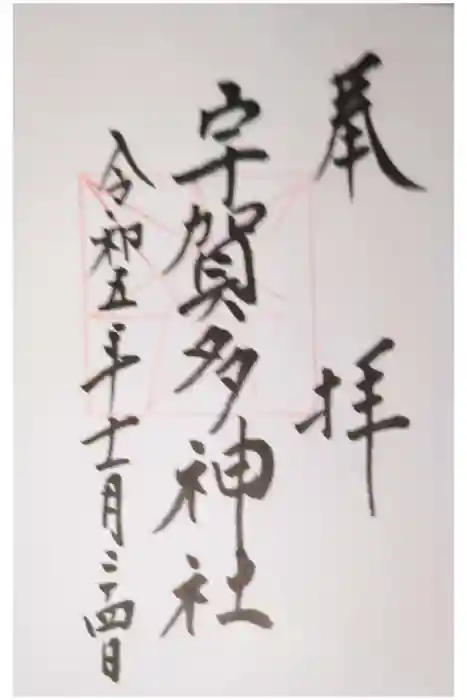 奉拝
宇賀多神社
令和五年十二月二十四日